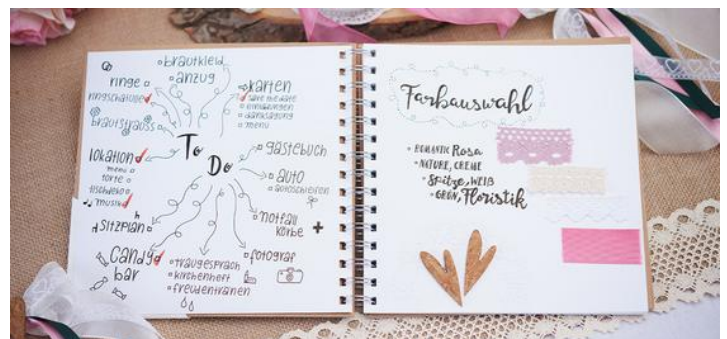 brautkleid
anzug
ringe
ringschatulle
brautstrauss
karten
save the date
einladungen
danksagung
menü
To
Do
lokation
menü
torte
tischdeko
musik
gästebuch
auto
autoschleifen
notfall
körbe
sitzplan
candy
bar
traugespräch
kirchenheft
freudentränen
fotograf
Farbauswahl
ROMANTIC Rosa
NATURE, CREME
Spitze, WEIß
GRÜN, Floristik